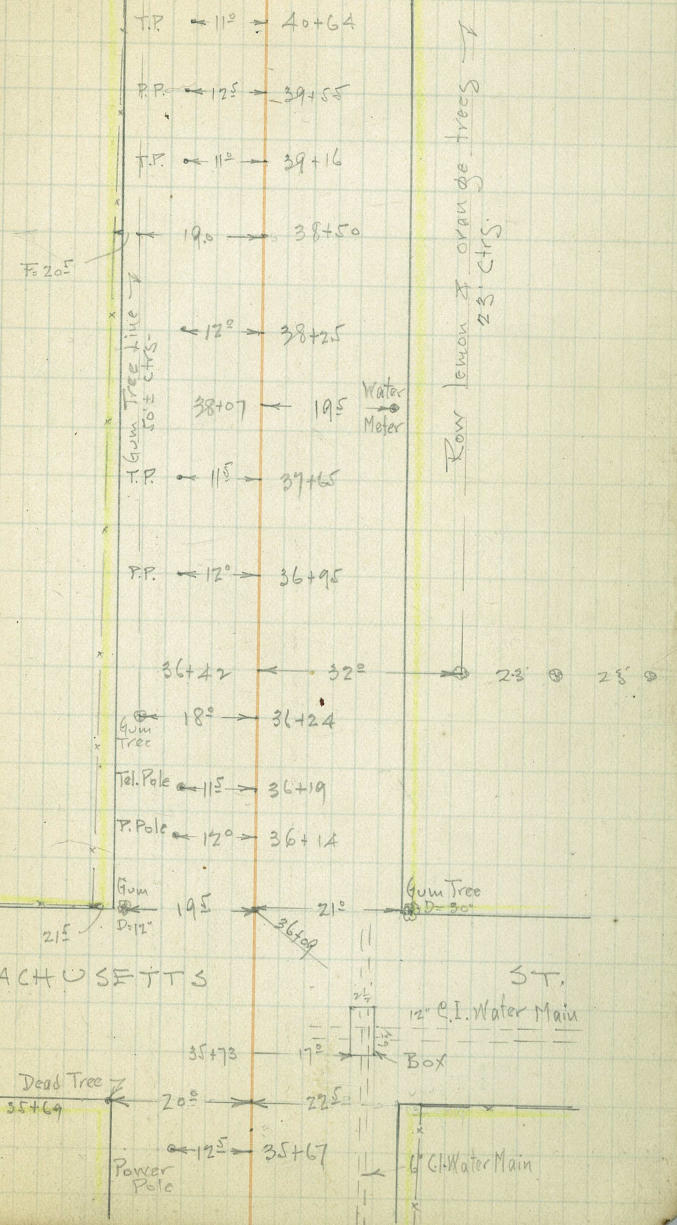 T.P. 11⁰ 40+64
P.P. 12⁵ 39+55
T.P. 11⁰ 39+16
19.0 38+50
F=20⁵
12⁰ 38+25
Gum Tree Line
50'± Ctrs.
Row lemon & orange trees
23' Ctrs.
38+07 19⁵ Water Meter
T.P. 11⁵ 37+65
P.P. 12⁰ 36+95
36+42 32⁰ 23'
Gum Tree 18⁰ 36+24
Tel. Pole 11⁵ 36+19
P. Pole 12⁰ 36+14
Gum D=12" 19⁵ 21⁰ Gum Tree D=30"
21⁵ 36+09
ACHUSETTS ST.
12" C.I. Water Main
35+73 17⁰ Box
Dead Tree
35+69 20⁰ 22⁵
12⁵ 35+67
Power Pole
6" C.I. Water Main